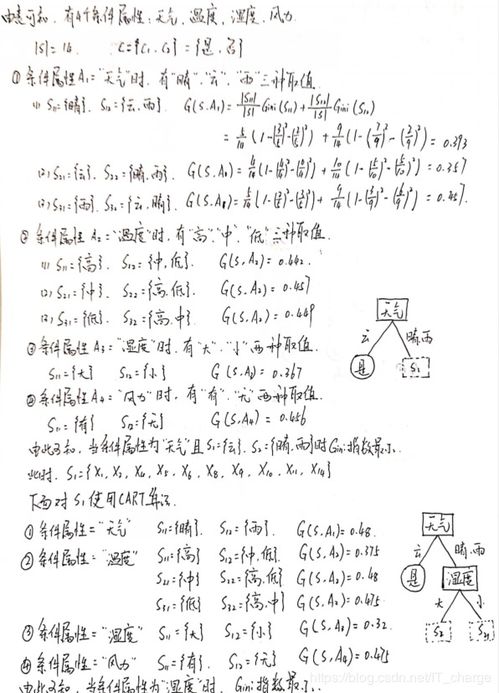 由表可知，有4个条件属性：天气，温度，湿度，风力.
|S|=14. C={C₁, C₂}={是,否}
① 条件属性A₁="天气"时，有"晴","云","雨"三种取值.
(1) S₁₁={晴}. S₁₂={云,雨}. G(S,A₁)=|S₁₁|/|S| Gini(S₁₁)+|S₁₂|/|S| Gini(S₁₂)
=5/14(1-(2/5)²-(3/5)²)+9/14(1-(7/9)²-(2/9)²)=0.393
(2) S₂₁={云}. S₂₂={晴,雨}. G(S,A₁)= =0.357
(3) S₃₁={雨}. S₃₂={云,晴}. G(S,A₁)= =0.457.
② 条件属性A₂="温度"时，有"高","中","低"三种取值.
(1) S₁₁={高}. S₁₂={中,低}. G(S,A₂)=0.442.
(2) S₂₁={中}. S₂₂={高,低}. G(S,A₂)=0.457
(3) S₃₁={低}. S₃₂={高,中}. G(S,A₂)=0.449
天气
云 晴雨
是 S₁
③ 条件属性A₃="湿度"时，有"大","小"两种取值.
S₁₁={大} S₁₂={小} G(S,A₃)=0.367
④ 条件属性A₄="风力"时，有"有","无"两种取值.
S₁₁={有} S₁₂={无} G(S,A₄)=0.456
由此可知，当条件属性为"天气"且S₁={云}. S₂={晴,雨}时Gini指数最小.
此时. S₁={X₁, X₂, X₄, X₅, X₆, X₈, X₉, X₁₀, X₁₁, X₁₄}
下面对S₁使用CART算法.
① 条件属性="天气" S₁₁={晴}. S₁₂={雨}. G(S,A₁)=0.48.
② 条件属性="温度" S₁₁={高} S₁₂={中,低}. G(S,A₂)=0.375
S₂₁={中} S₂₂={高,低} G(S,A₂)=0.48
S₃₁={低} S₃₂={高,中} G(S,A₂)=0.475
③ 条件属性="湿度" S₁₁={大} S₁₂={小} G(S,A₃)=0.32.
④ 条件属性="风力" S₁₁={有} S₁₂={无} G(S,A₄)=0.475
由此可知，当条件属性为"湿度"时，Gini指数最小.
天气
云 晴,雨
是 湿度
大 小
S₂ S₃
https://blog.csdn.net/IT_charge